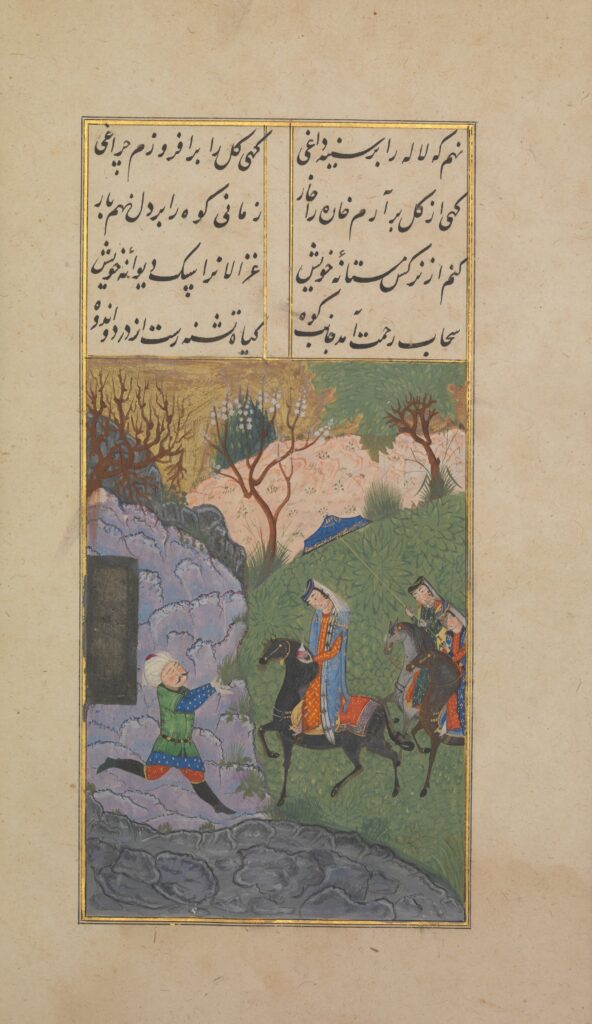 نهم که لاله را بر سینه داغی کهی کل را برافروزم چراغی
کهی از کل برآرم خاره را خار زمانی کوه را بر دل نهم بار
کنم از نرکس مستانهٔ خویش غزالانرا سبک دیوانهٔ خویش
سحاب رحمت آمد جانب کوه کیاه تشنه رست از درد و اندوه